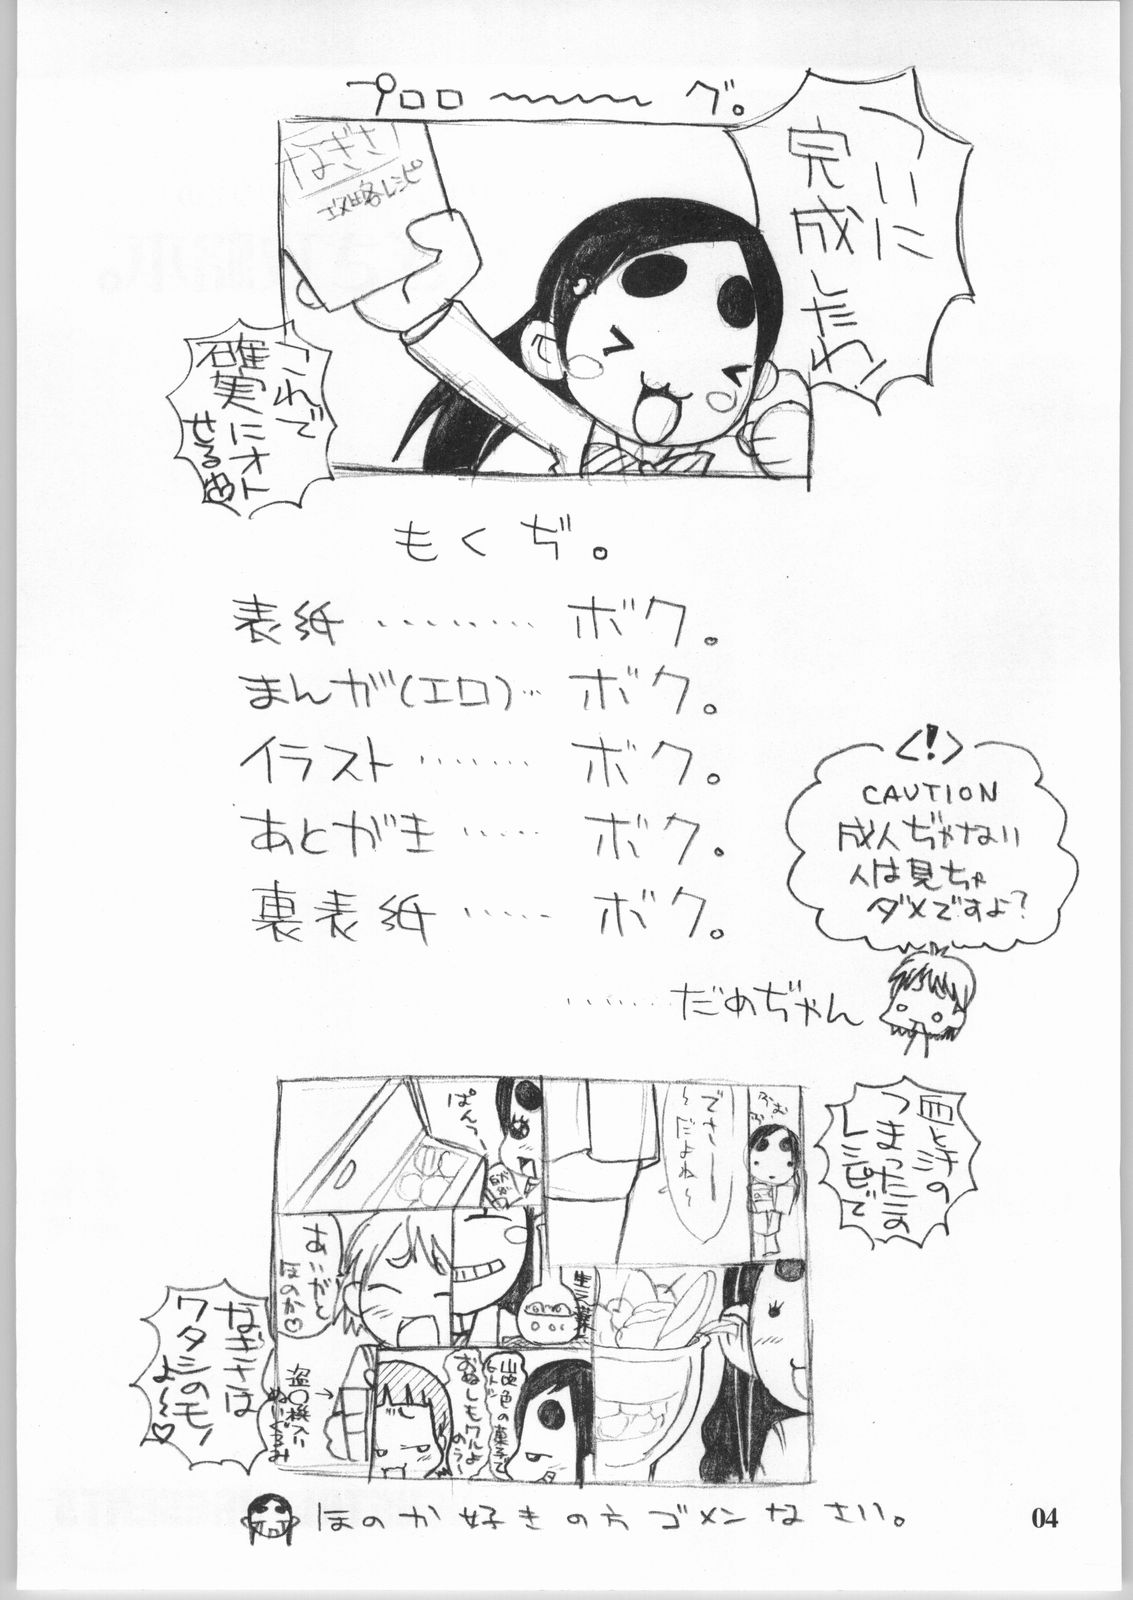 プロロ〜〜〜グ。
ついに
完成したわ!
なぎさ
攻略レシピ
これで
確実にオト
せるわ
もくぢ。
表紙………ボク。
まんが(エロ)…ボク。
イラスト………ボク。
あとがき……ボク。
裏表紙……ボク。
<!>
CAUTION
成人ぢゃない
人は見ちゃ
ダメですよ?
……だめぢゃん
血と汗の
つまったこの
レシピで
ふむ
ふむ
でさー
〜だよね〜
ぱんつ
ありがと
ほのか♡
なぎさは
ワタシのモノ
よ〜♡
盗〇機入り
ぬいぐるみ
→
山吹色の菓子で
おぬしもワルよ
のう〜
ほのか好きの方ゴメンなさい。
04